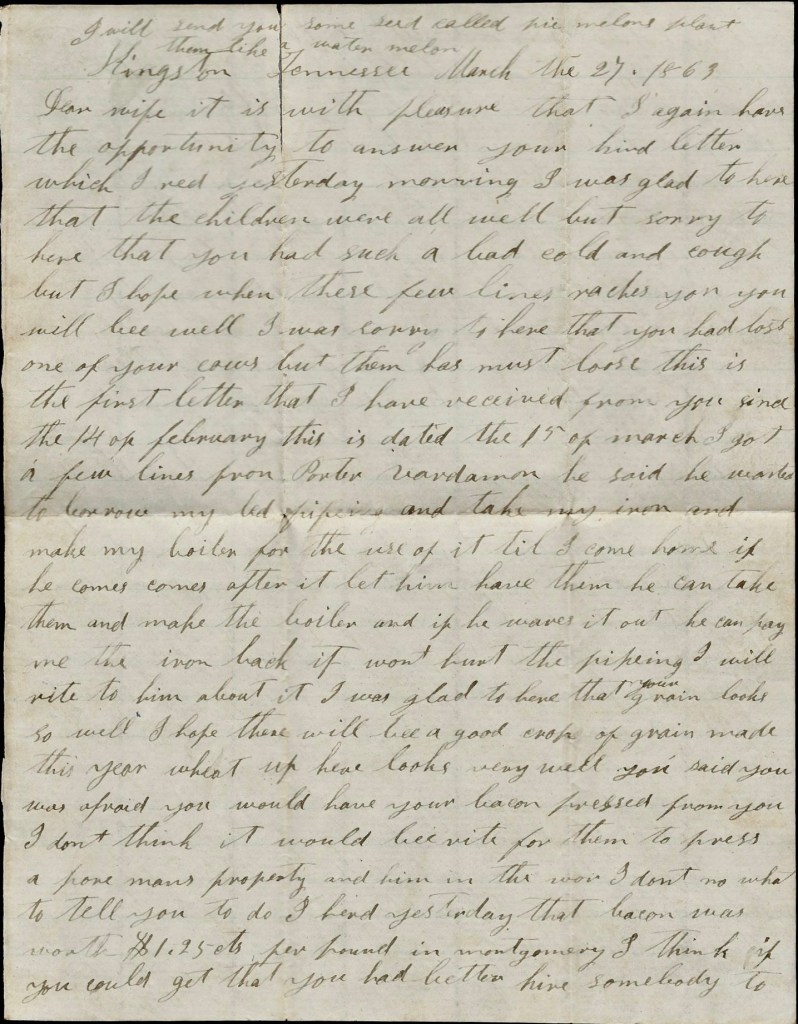 I will send you some seed called pie melons plant
them like a water melon
Kingston Tennessee March the 27. 1863
Dear wife it is with pleasure that I again have
the opportunity to answer your kind letter
which I red yesterday morning I was glad to here
that the children were all well but sorry to
here that you had such a bad cold and cough
but I hope when these few lines raches you you
will bee well I was sorry to here that you had loss
one of your cows but them has must loose this is
the first letter that I have received from you sind
the 14 of february this is dated the 15 of march I got
a few lines fron Porter Vardamon he said he wanted
to borrow my led pipeing and take my iron and
make my boiler for the use of it til I come home if
he comes comes after it let him have them he can take
them and make the boiler and if he wares it out he can pay
me the iron back it wont hurt the pipeing I will
rite to him about it I was glad to here that your grain looks
so well I hope there will bee a good crop of grain made
this year wheat up here looks very well you said you
was afraid you would have your bacon pressed from you
I dont think it would bee rite for them to press
a pore mans property and him in the wor I dont no what
to tell you to do I herd yesterday that bacon was
worth $1.25 cts per pound in montgomery I think if
you could get that you had better hire somebody to